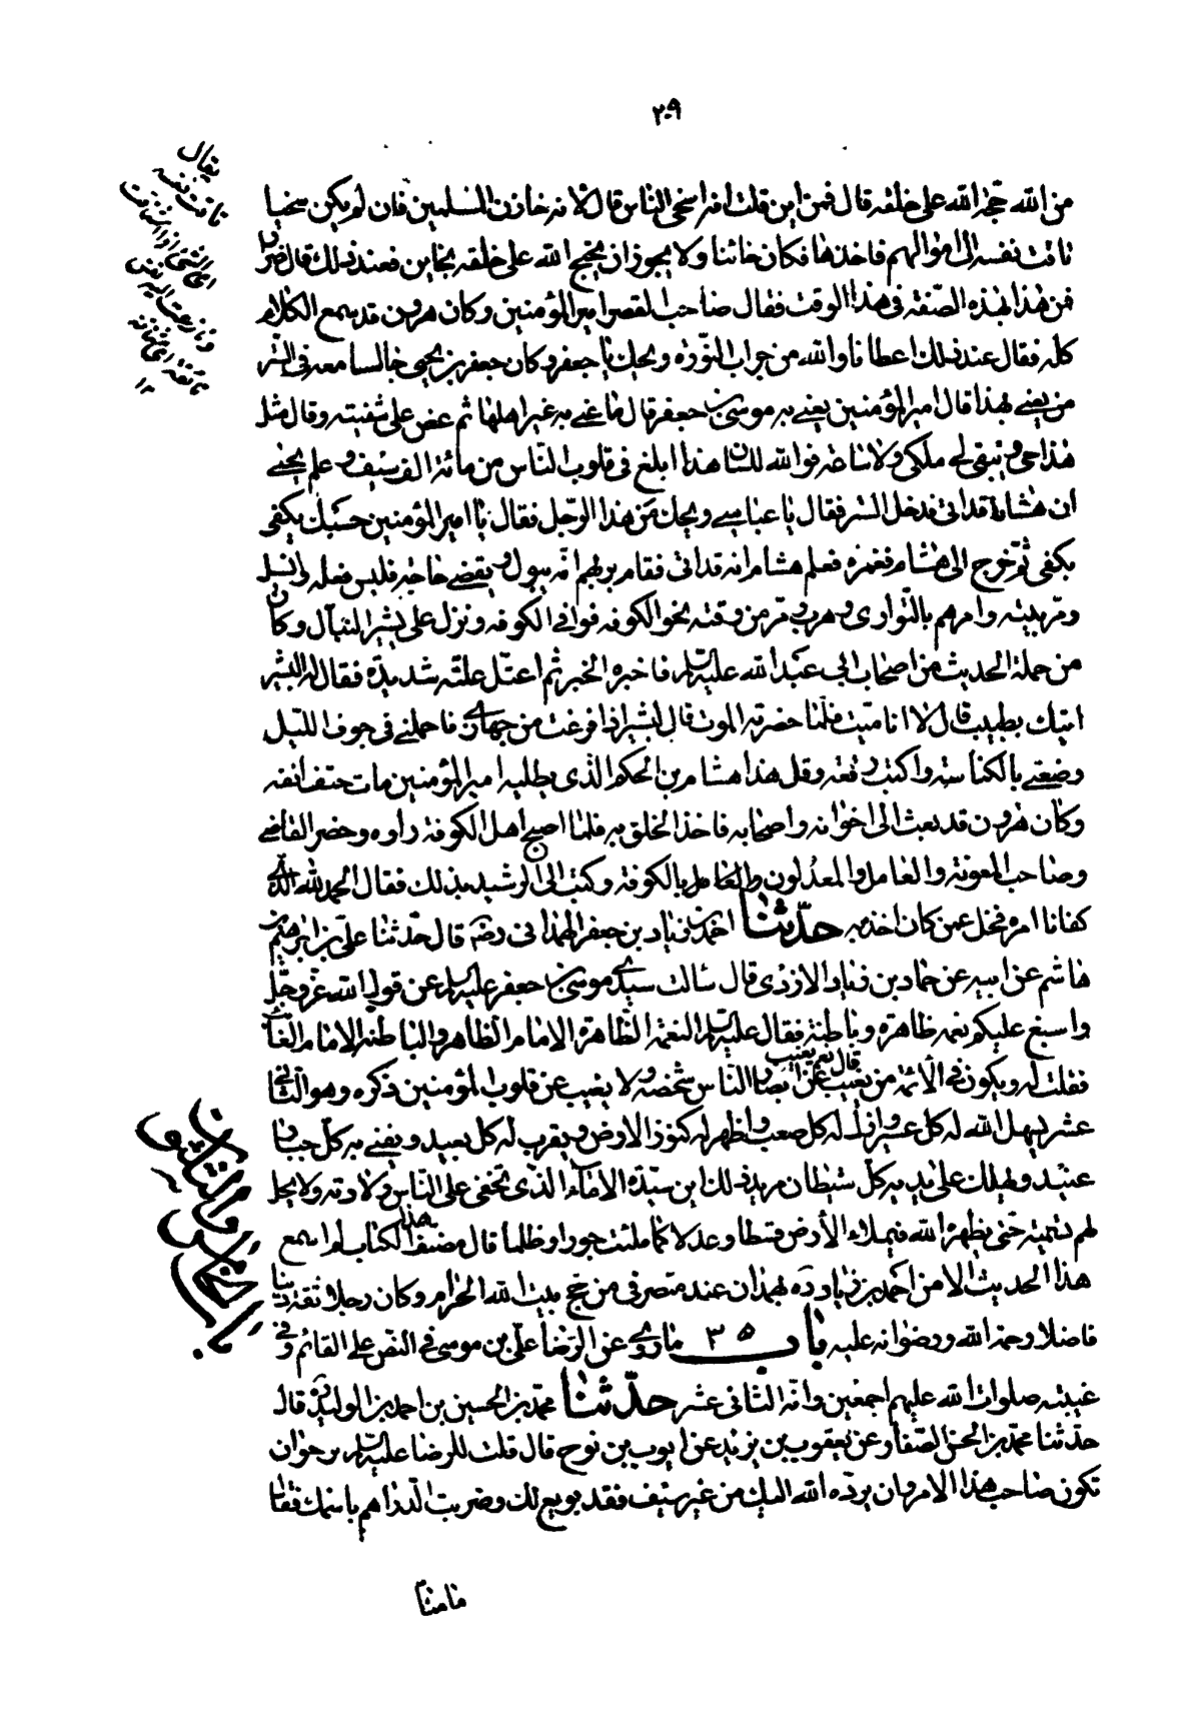 ٢٠٩
من الله حجة الله على خلقه قال فمن اين قلت انه اسخى الناس قال لانه خازن المسلمين فان لم يكن سخيا
تاقت نفسه الى اموالهم فاخذها فكان خائنا ولا يجوز ان يحتج الله على خلقه بخاين فعند ذلك قال ضرار
فمن هذا بهذه الصفة فى هذا الوقت فقال صاحب القصر امير المؤمنين وكان هرون قد سمع الكلام
كله فقال عند ذلك اعطانا والله من جراب النورة ويحك يا جعفر وكان جعفر بن يحيى جالسا معه فى الستر
من يعنى بهذا قال امير المؤمنين يعنى به موسى بن جعفر قال ما عنى به غير اهلها ثم عض على شفتيه وقال مثل
هذا حى ويبقى لى ملكى ولا ساعة فوالله للسان هذا ابلغ فى قلوب الناس من مائة الف سيف وعلم يحيى
ان هشاما قد اتى فدخل الستر فقال يا عباسى ويحك من هذا الرجل فقال يا امير المؤمنين حسبك يكفى
يكفى ثم خرج الى هشام فغمزه فعلم هشام انه قد اتى فقام يريهم انه يبول او يقضى حاجة فلبس نعله وانسل
ومر ببيته وامرهم بالتوارى وهرب ومر من وقته نحو الكوفه فوافى الكوفه ونزل على بشير النبال وكان
من حملة الحديث من اصحاب ابى عبد الله عليه السلم فاخبره الخبر ثم اعتل علته شديدة فقال له البشير
اتيك بطبيب قال لا انا ميت فلما حضرته الموت قال لبشير اذا فرغت من جهازى فاحملنى فى جوف الليل
وضعنى بالكناسته واكتب رقعة وقل هذا هشام بن الحكم الذى يطلبه امير المؤمنين مات حتف انفه
وكان هرون قد بعث الى اخوانه واصحابه فاخذ الخلق به فلما اصبح اهل الكوفة راوه وحضر القاضى
وصاحب المعونة والعامل والمعدلون بالكوفة وكتب الى الرشيد بذلك فقال الحمد لله الذى
كفانا امره فخلى عمن كان اخذ به حدثنا احمد بن زياد بن جعفر الهمدانى رضه قال حدثنا على بن ابرهيم بن
هاشم عن ابيه عن حماد بن زياد الازدى قال سالت سيدى موسى بن جعفر عليه السلم عن قول الله عز وجل
واسبغ عليكم نعمه ظاهرة وباطنة فقال عليه السلم النعمة الظاهرة الامام الظاهر والباطنة الامام الغائب
فقلت له ويكون فى الائمة من يغيب قال نعم يغيب عن ابصار الناس شخصه ولا يغيب عن قلوب المؤمنين ذكره وهو الثانى
عشر يسهل الله له كل عسير ويذلل له كل صعب ويظهر له كنوز الارض ويقرب له كل بعيد ويفنى به كل جبار
عنيد ويهلك على يديه كل شيطان مريد ذلك ابن سيدة الاماء الذى تخفى على الناس ولادته ولا يحل
لهم تسميته حتى يظهره الله فيملاء الأرض قسطا وعدلا كما ملئت جورا وظلما قال مصنف هذا الكتاب لم اسمع
هذا الحديث الا من احمد بن زياد ره بهمدان عند منصرفى من حج بيت الله الحرام وكان رجلا ثقة دينا
فاضلا رحمة الله ورضوانه عليه باب ٣٥ ما روى عن الرضا على بن موسى فى النص على القائم وفى
غيبته صلوات الله عليهم اجمعين وانه الثانى عشر حدثنا محمد بن الحسين بن احمد بن الوليد ره قال
حدثنا محمد بن الحسن الصفار عن يعقوب بن يزيد عن ايوب بن نوح قال قلت للرضا عليه السلم نرجو ان
تكون صاحب هذا الامر وان يرده الله اليك من غير سيف فقد بويع لك وضربت الدراهم باسمك فقال
ما منا
يقال
تاقت نفسه
الى الشئ اذا اشتاقت
ونازعت اليه نفس
تائقة اى مشتاقة
١٢
باب الخامس والثلثون